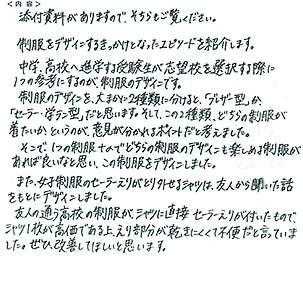 ＜内容＞
添付資料がありますので、そちらもご覧ください。
制服をデザインするきっかけとなったエピソードを紹介します。
中学、高校へ進学する受験生が志望校を選択する際に
1つの参考にするのが、制服のデザインです。
制服のデザインを、大まかに2種類に分けると、「ブレザー型」か、
「セーラー・学ラン型」だと思います。そして、この2種類、どちらの制服が
着たいか、というのが、意見が分かれるポイントだと考えました。
そこで、1つの制服の中でどちらの制服のデザインも楽しめる制服が
あれば良いなと思い、この制服をデザインしました。
また、女子制服のセーラーえりがとり外せるシャツは、友人から聞いた話
をもとにデザインしました。
友人の通う高校の制服が、シャツに直接セーラーえりが付いたもので、
シャツ1枚が高価である上、えり部分が乾きにくくて不便だと言っていま
した。ぜひ、改善してほしいと思います。